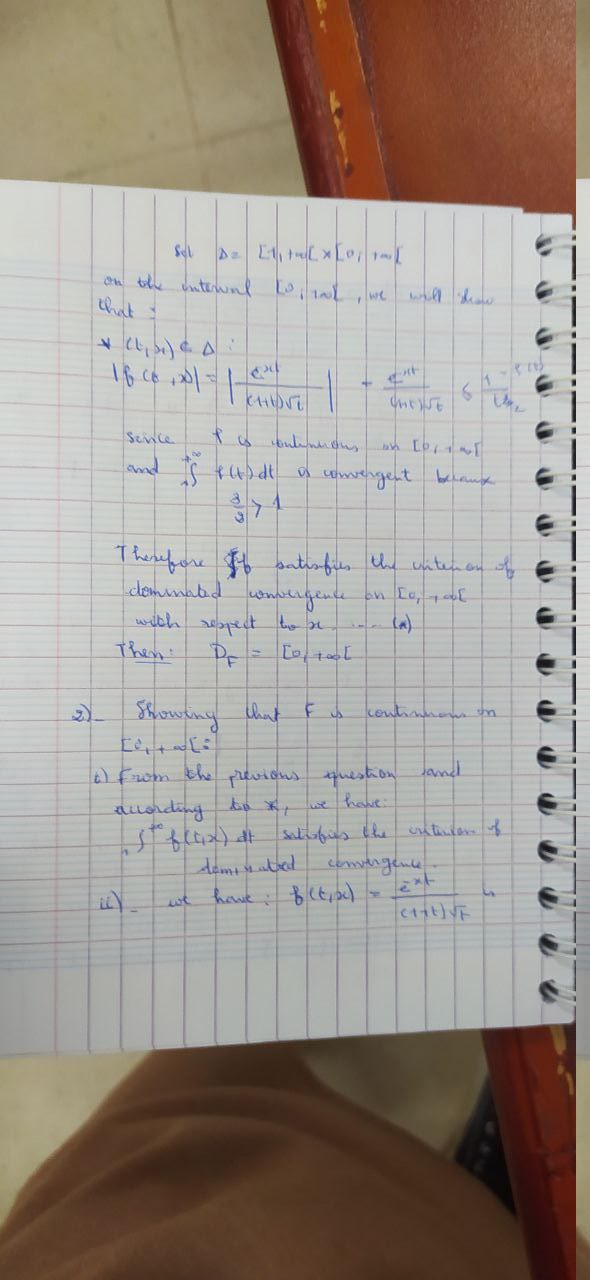 Set Δ = [1, +∞[ × [0, +∞[
on the interval [0, +∞[, we will show
that :
* (t, x) ∈ Δ :
|f(t, x)| = | e^{-xt} / ((1+t)√t) | = e^{-xt} / ((1+t)√t) ≤ 1 / t^{3/2} = φ(t)
since φ is continuous on [0, +∞[
and ∫_1^{+∞} φ(t) dt is convergent because
3/2 > 1
Therefore f satisfies the criterion of
dominated convergence on [0, +∞[
with respect to x ..... (*)
Then: D_F = [0, +∞[
2)_ Showing that F is continuous on
[0, +∞[ :
i) From the previous question and
according to *, we have:
∫_1^{+∞} f(t,x) dt satisfies the criterion of
dominated convergence.
ii)_ we have : f(t,x) = e^{-xt} / ((1+t)√t)